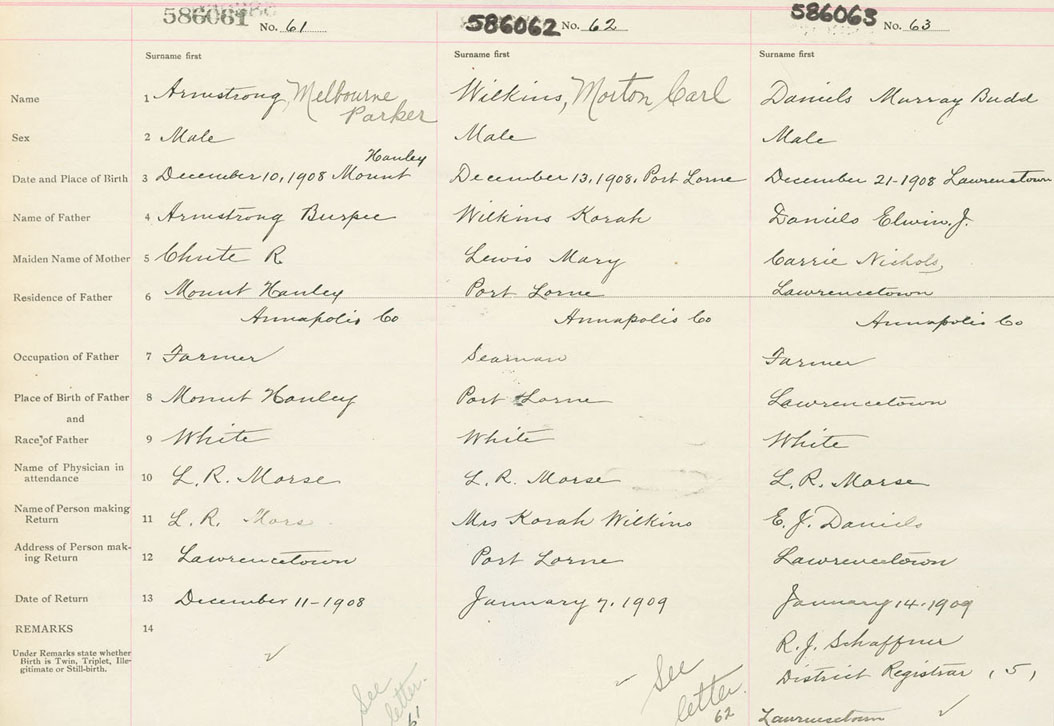 586061 No. 61 586062 No. 62 586063 No. 63
Surname first Surname first Surname first
Name 1 Armstrong, Melbourne Parker Wilkins, Morton Carl Daniels Murray Budd
Sex 2 Male Male Male
Date and Place of Birth 3 December 10, 1908 Mount Hanley December 13, 1908, Port Lorne December 21-1908 Lawrencetown
Name of Father 4 Armstrong Burpee Wilkins Korah Daniels Elwin. J.
Maiden Name of Mother 5 Chute R Lewis Mary Carrie Nichols,
Residence of Father 6 Mount Hanley Port Lorne Lawrencetown
Annapolis Co Annapolis Co Annapolis Co
Occupation of Father 7 Farmer Seaman Farmer
Place of Birth of Father 8 Mount Hanley Port Lorne Lawrencetown
and
Race of Father 9 White White White
Name of Physician in attendance 10 L. R. Morse L. R. Morse L. R. Morse
Name of Person making Return 11 L. R. Mors Mrs Korah Wilkins E. J. Daniels
Address of Person making Return 12 Lawrencetown Port Lorne Lawrencetown
Date of Return 13 December 11-1908 January 7, 1909 January 14-1909
REMARKS 14 R. J. Schaffner
Under Remarks state whether Birth is Twin, Triplet, Illegitimate or Still-birth. District Registrar, 5,
See letter. 61 See letter. 62 Lawrencetown